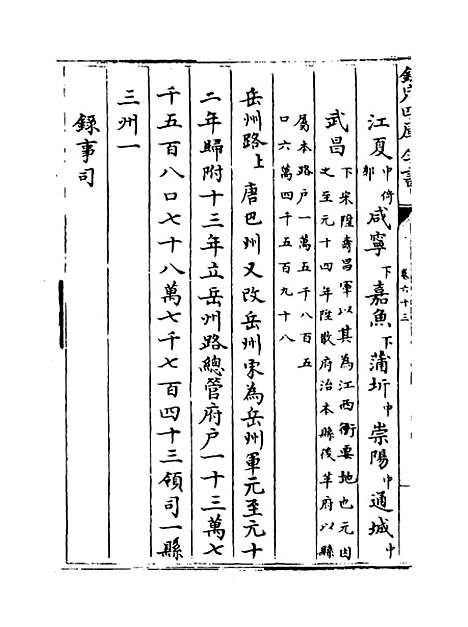 欽定四庫全書
卷六十三
江夏中倚郭咸寧下嘉魚下蒲圻中崇陽中通城中
武昌下宋陞壽昌軍以其為江西衝要地也元因
之至元十四年陞散府治本縣後革府以縣
屬本路户一萬五千八百五
口六萬四千五百九十八
岳州路上唐巴州又改岳州宋為岳州軍元至元十
二年歸附十三年立岳州路總管府户一十三萬七
千五百八口七十八萬七千七百四十三領司一縣
三州一
錄事司